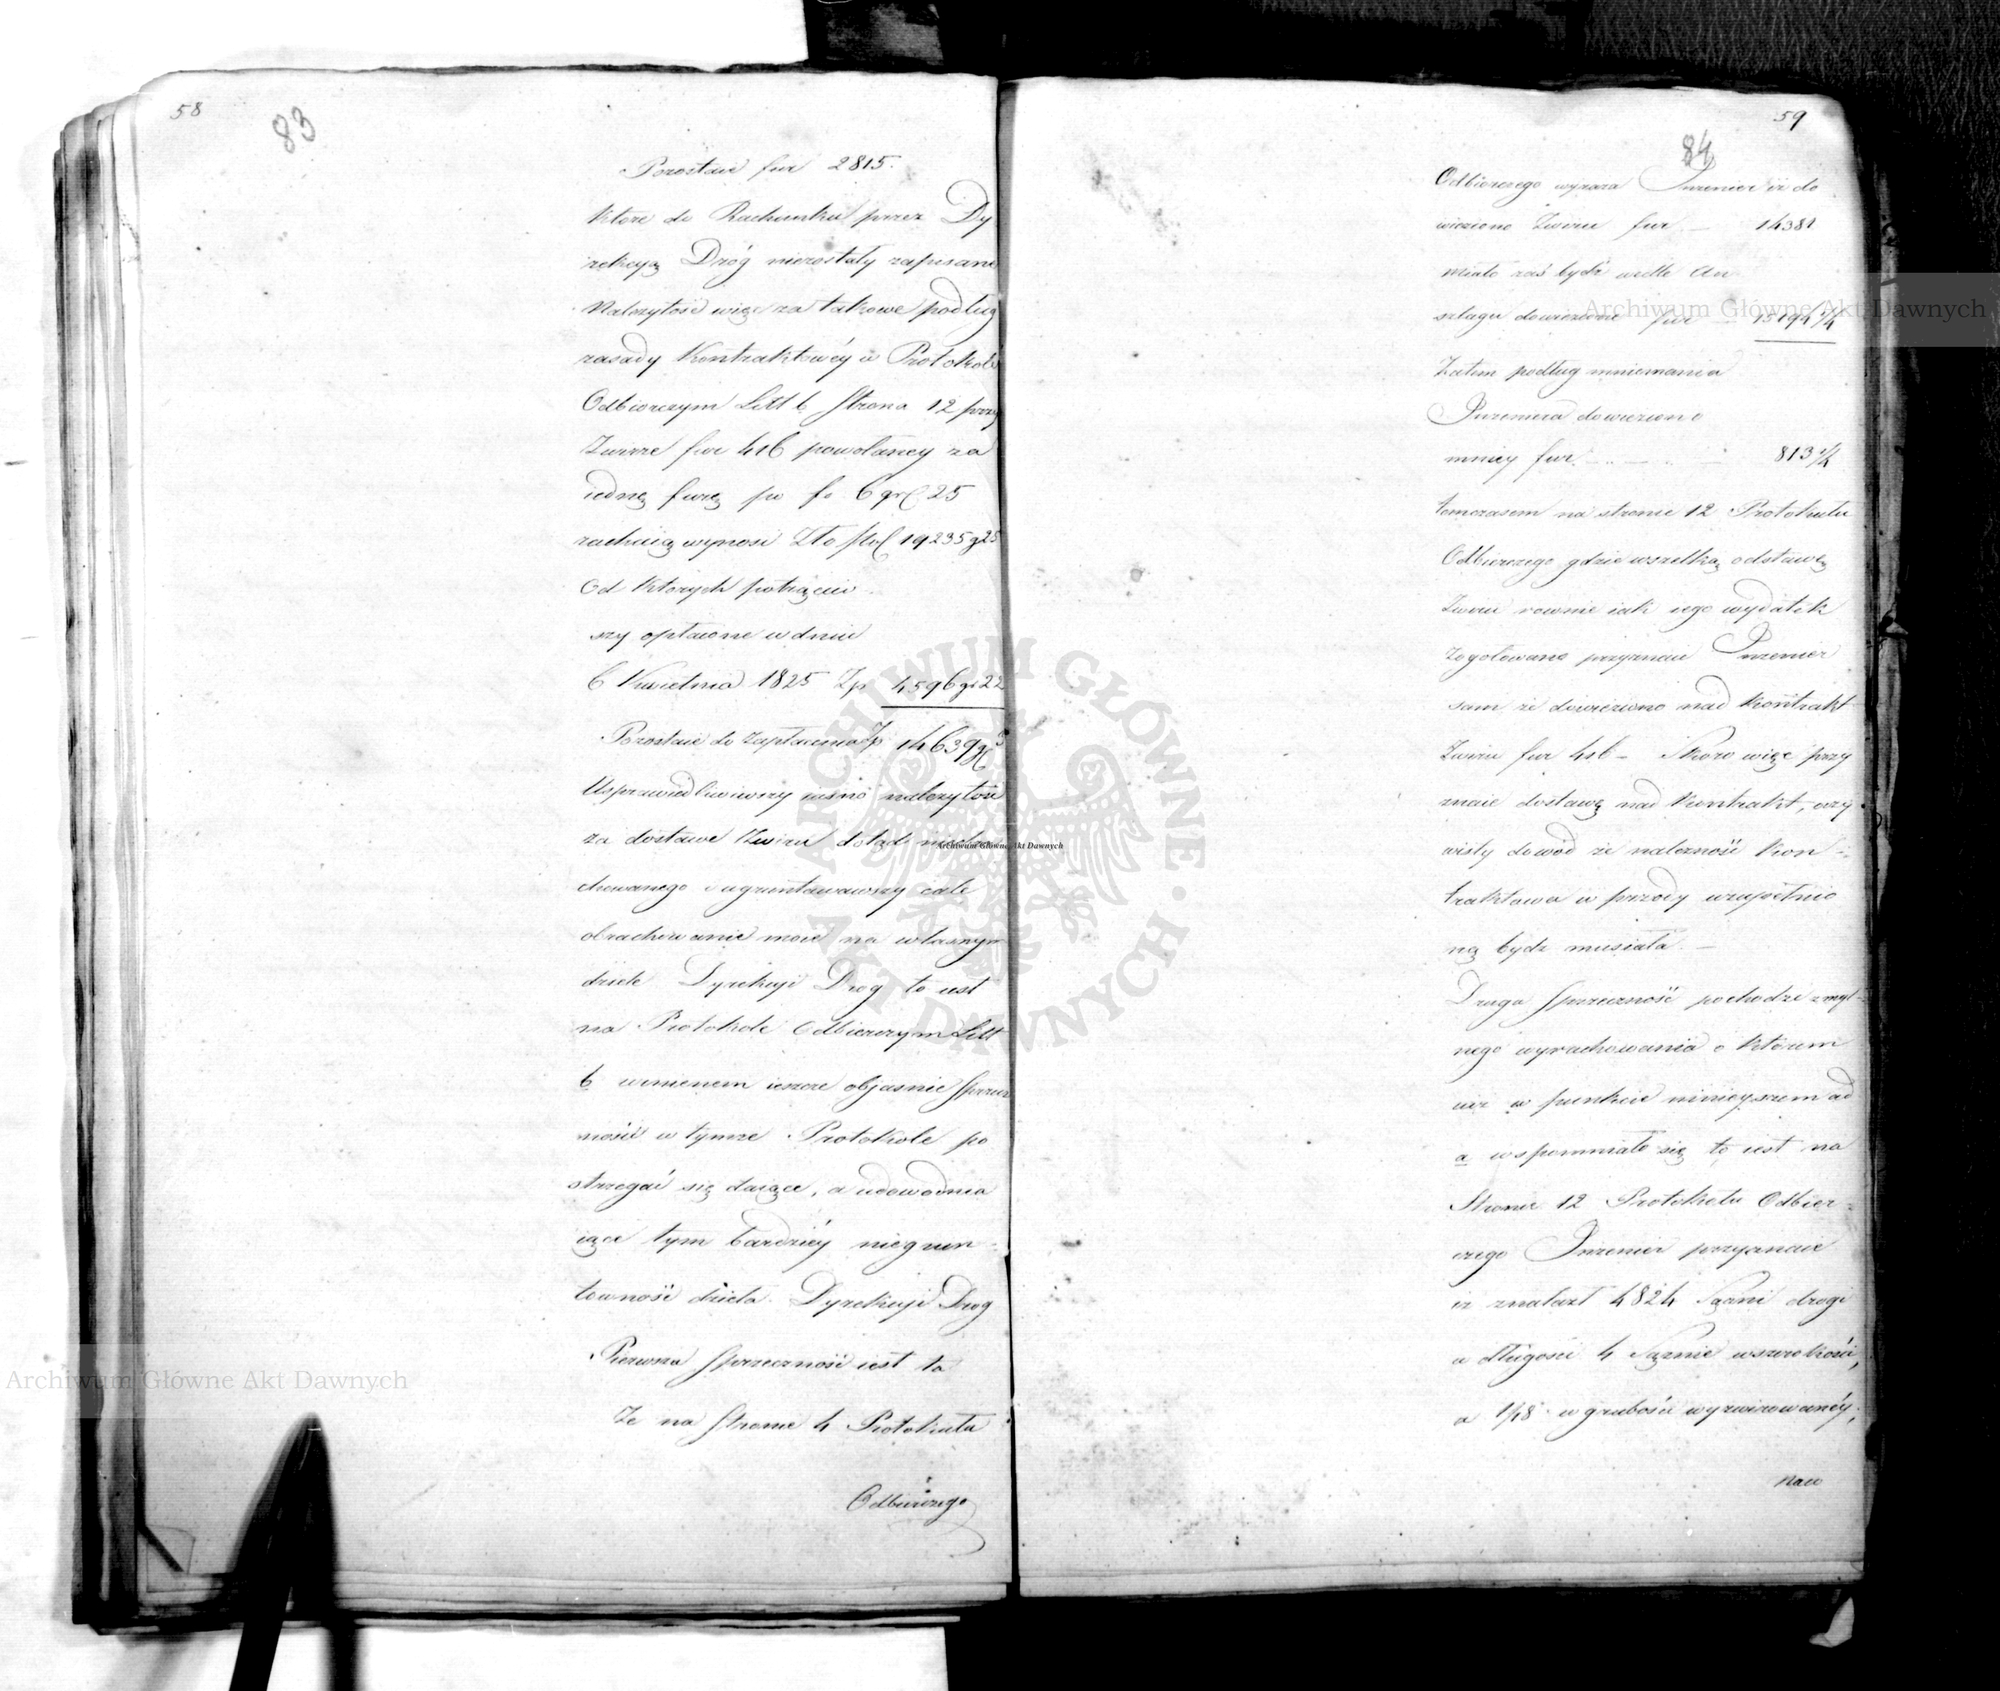 58
83
Pozostaie fur 2815.
Które do Rachunku przez Dy
rekcyą Dróg niezostały zapisane
Należytość więc za takowe podług
zasady Kontraktowéy w Protokole
Odbiorczym Litt b Strona 12 przy
Zwirze fur 416 powołaney za
iednę furę po fo 6 gr 25
rachuiąc wynosi Zło 19235 g 25
Od których potrąciw
szy opłacone w dniu
6 Kwietnia 1825 Zp 4596 gr 22
Pozostaie do zapłacenia Zp 14639 gr 3
Usprawiedliwiwszy iasno należytość
za dostawę Zwiru dotąd
chowanego i ugruntowawszy całe
obrachowanie moie na własnym
dziele Dyrekcyi Dróg to iest
na Protokole Odbierczym Litt
b winienem ieszcze objasnić Sprzecz
ności w tymże Protokole po
strzegać się daiące, a udowodnia
iące tym bardziéy niegrun-
towność dzieła Dyrekcyi Dróg
Pierwsza Sprzeczność iest ta
Że na Stronie 4 Protokułu
Odbiorczego
59
84
Odbiorczego wyraża Inżenier iż do
wieziono Zwiru fur — 14381
miało zaś bydź wedle An
szlagu dowiezione fur — 15194 1/4
Zatem podług mniemania
Inżeniera dowieziono
mniey fur — 813 1/4
tymczasem na stronie 12 Protokułu
Odbierczego gdzie wszelką odstawę
Zwiru rownie iak iego wydatek
zogołowano przyznaie Inżenier
sam że dowieziono nad Kontrakt
Zwiru fur 416 — Skoro więc przy
znaie dostawę nad Kontrakt, oczy
wisty dowód że należność Kon-
traktowa w przódy uzupełnio
ną bydź musiała —
Druga Sprzeczność pochodzi z myl-
nego wyrachowania o którem
iuż w punkcie ninieyszem ad
a wspomniało się to iest na
Stronie 12 Protokułu Odbier-
czego Inżenier przyznaie
iż znalazł 4824 Sążni drogi
w długości 4 Sążnie w szerokości,
a 1/18 w grubości wyzwirowanéy;
naw
Archiwum Główne Akt Dawnych
Archiwum Główne Akt Dawnych
Archiwum Główne Akt Dawnych
ARCHIWUM GŁÓWNE AKT DAWNYCH